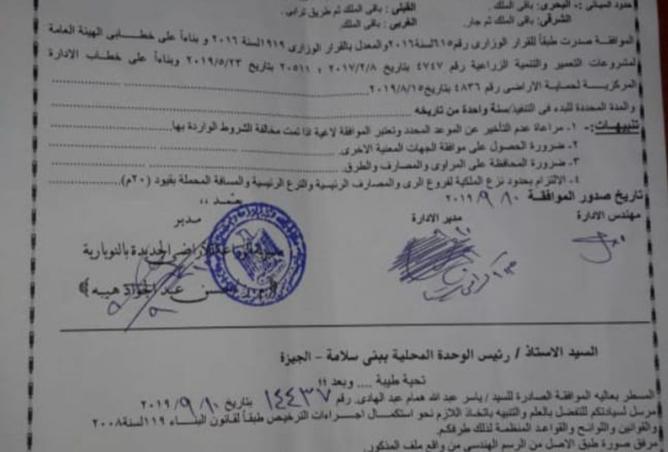 حدود المباني :- البحرى: باقى الملك . القبلى : باقى الملك ثم طريق ترابى .
الشرقى: باقى الملك ثم جار. الغربى : باقى الملك
الموافقة صدرت طبقاً للقرار الوزارى رقم ٦١٥لسنة٢٠١٦والمعدل بالقرار الوزارى ١٩١٩لسنة ٢٠١٦ و بناءاً على خطابى الهيئة العامة
لمشروعات التعمير والتنمية الزراعية رقم ٤٧٤٧ بتاريخ ٢٠١٧/٢/٨ ، ٢٠٥١١ بتاريخ ٢٠١٩/٥/٢٣ وبناءاً على خطاب الادارة
المركزية لحماية الاراضى رقم ٤٨٣٦ بتاريخ٢٠١٩/٨/١٥
والمدة المحددة للبدء فى التنفيذ/سنة واحدة من تاريخه
تنبيهات:- ١- مراعاة عدم التأخير عن الموعد المحدد وتعتبر الموافقة لاغية اذا تمت مخالفة الشروط الواردة بها
٢- ضرورة الحصول على موافقة الجهات المعنية الاخرى.
٣- ضرورة المحافظة على المراوى والمصارف والطرق.
٤- الالتزام بحدود نزع الملكية لفروع الرى والمصارف الرئيسية والترع الرئيسية والمسافة المحملة بقيود (٢٠م)
تاريخ صدور الموافقة ٢٠١٩/٩/١٠
يعتمد ،،
مهندس الادارة مدير الادارة مدير
الزراعة الأراضى الجديدة بالنوبارية
عبد الجواد هيبه
السيد الاستاذ / رئيس الوحدة المحلية ببنى سلامة - الجيزة
تحية طيبة .... وبعد !!
المسطر بعاليه الموافقة الصادرة للسيد / ياسر عبد الله همام عبد الهادى. رقم ١٤٤٣٧ بتاريخ ٢٠١٩/٩/١٠
مرسل لسيادتكم للتفضل بالعلم والتنبيه باتخاذ اللازم نحو استكمال اجراءات الترخيص طبقاً لقانون البناء ١١٩لسنة٢٠٠٨
والقوانين واللوائح والقواعد المنظمة لذلك طرفكم.
مرفق صورة طبق الاصل من الرسم الهندسى من واقع ملف المذكور.